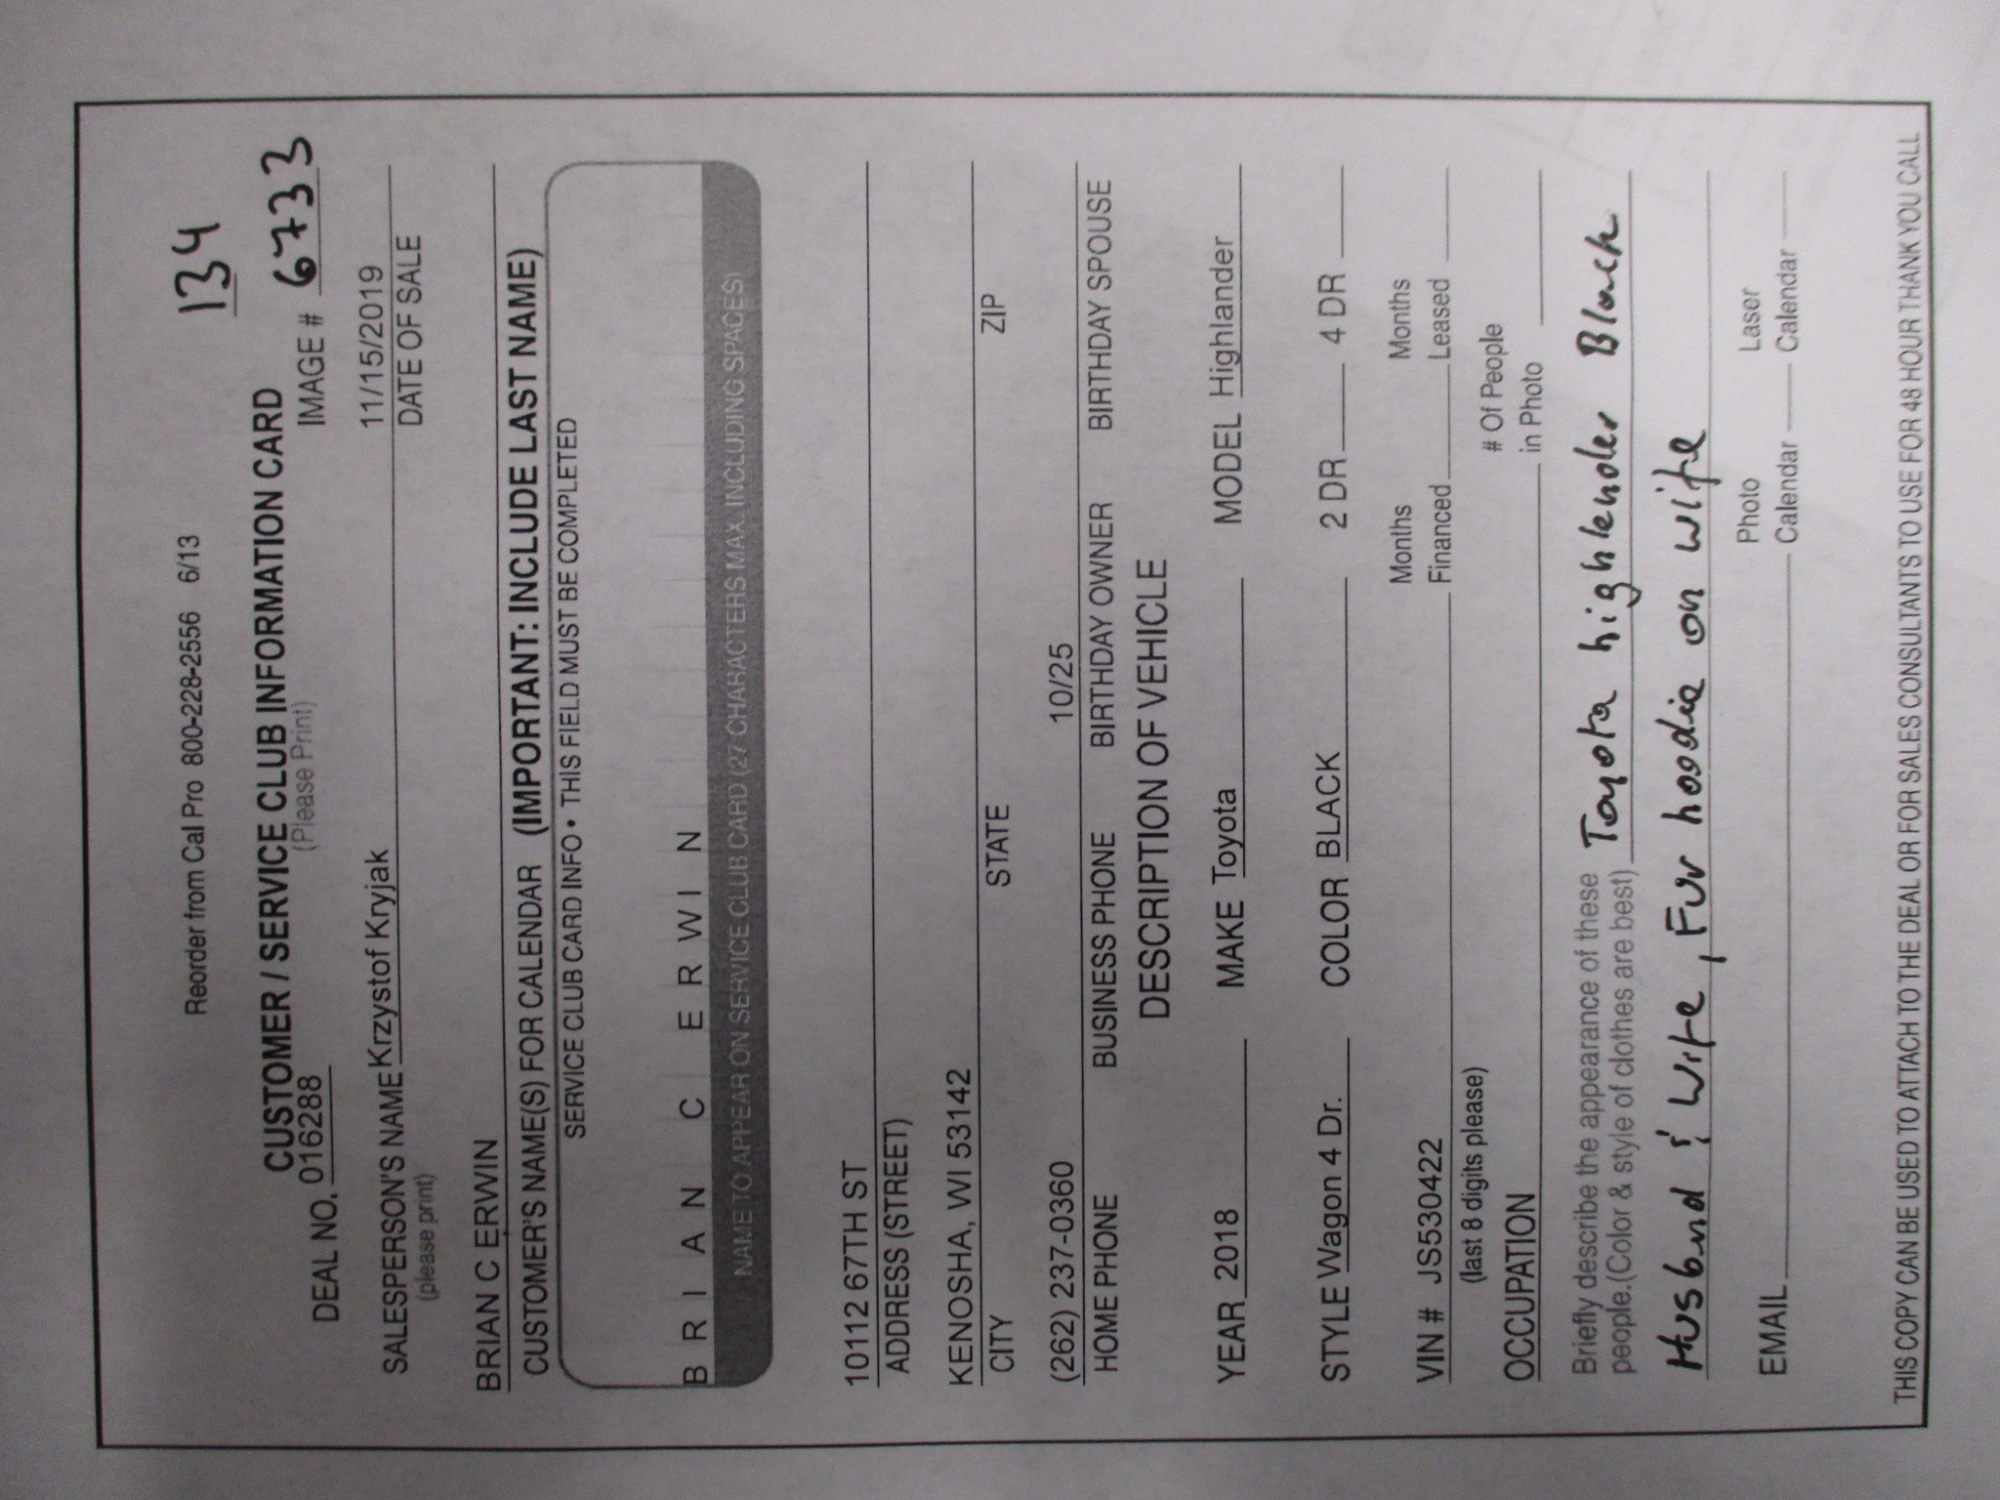 Reorder from Cal Pro 800-228-2556 6/13
134
CUSTOMER / SERVICE CLUB INFORMATION CARD
(Please Print)
DEAL NO. 016288
IMAGE # 6733
SALESPERSON'S NAME Krzystof Kryjak
11/15/2019
(please print)
DATE OF SALE
BRIAN C ERWIN
CUSTOMER'S NAME(S) FOR CALENDAR (IMPORTANT: INCLUDE LAST NAME)
SERVICE CLUB CARD INFO • THIS FIELD MUST BE COMPLETED
B R I A N C E R W I N
NAME TO APPEAR ON SERVICE CLUB CARD (27 CHARACTERS MAX. INCLUDING SPACES)
10112 67TH ST
ADDRESS (STREET)
KENOSHA, WI 53142
CITY STATE ZIP
(262) 237-0360 10/25
HOME PHONE BUSINESS PHONE BIRTHDAY OWNER BIRTHDAY SPOUSE
DESCRIPTION OF VEHICLE
YEAR 2018 MAKE Toyota MODEL Highlander
STYLE Wagon 4 Dr. COLOR BLACK 2 DR 4 DR
VIN # JS530422 Months Financed Months Leased
(last 8 digits please)
OCCUPATION # Of People in Photo
Briefly describe the appearance of these
people.(Color & style of clothes are best) Toyota highlender Black
Husband & Wife, Fur hoodie on wife
EMAIL Photo Calendar Laser Calendar
THIS COPY CAN BE USED TO ATTACH TO THE DEAL OR FOR SALES CONSULTANTS TO USE FOR 48 HOUR THANK YOU CALL